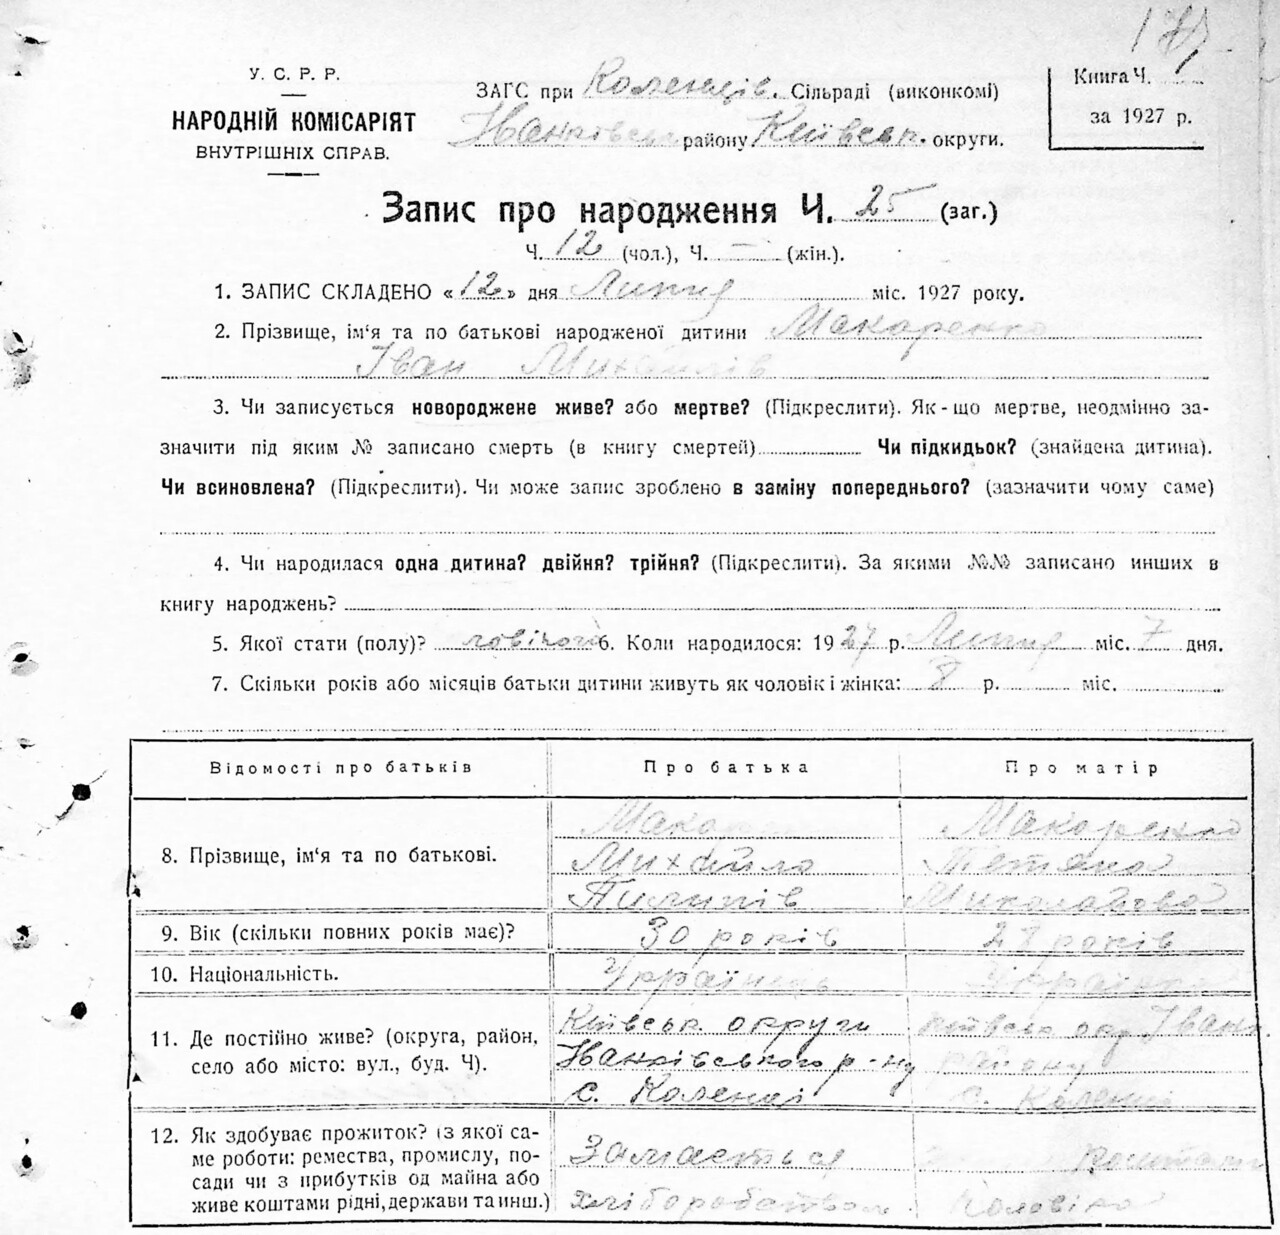 У. С. Р. Р.
НАРОДНІЙ КОМІСАРІЯТ
ВНУТРІШНІХ СПРАВ.
ЗАГС при Коленців. Сільраді (виконкомі)
Іванківськ району Київськ. округи.
Книга Ч. 1
за 1927 р.
Запис про народження Ч. 25 (заг.)
Ч. 12 (чол.), Ч. — (жін.).
1. ЗАПИС СКЛАДЕНО «12» дня Липня міс. 1927 року.
2. Прізвище, ім‘я та по батькові народженої дитини Макаренко
Іван Михайлів
3. Чи записується новороджене живе? або мертве? (Підкреслити). Як-що мертве, неодмінно за-
значити під яким № записано смерть (в книгу смертей) Чи підкидьок? (знайдена дитина).
Чи всиновлена? (Підкреслити). Чи може запис зроблено в заміну попереднього? (зазначити чому саме)
4. Чи народилася одна дитина? двійня? трійня? (Підкреслити). За якими №№ записано инших в
книгу народжень?
5. Якої стати (полу)? чоловічого 6. Коли народилося: 1927 р. Липня міс. 7 дня.
7. Скільки років або місяців батьки дитини живуть як чоловік і жінка: 8 р. міс.
Відомості про батьків Про батька Про матір
8. Прізвище, ім‘я та по батькові.
Макар
Михайло
Пилипів
Макаренко
Тетяна
Миколайова
9. Вік (скільки повних років має)? 30 років 28 років
10. Національність. Українець Українка
11. Де постійно живе? (округа, район,
село або місто: вул., буд. Ч).
Київськ округи
Іванківського р-ну
с. Коленці
Київськ окр Іванк.
району
с. Коленці
12. Як здобуває прожиток? (з якої са-
ме роботи: ремества, промислу, по-
сади чи з прибутків од майна або
живе коштами рідні, держави та инш.)
Займається
хліборобством
коштами
чоловіка